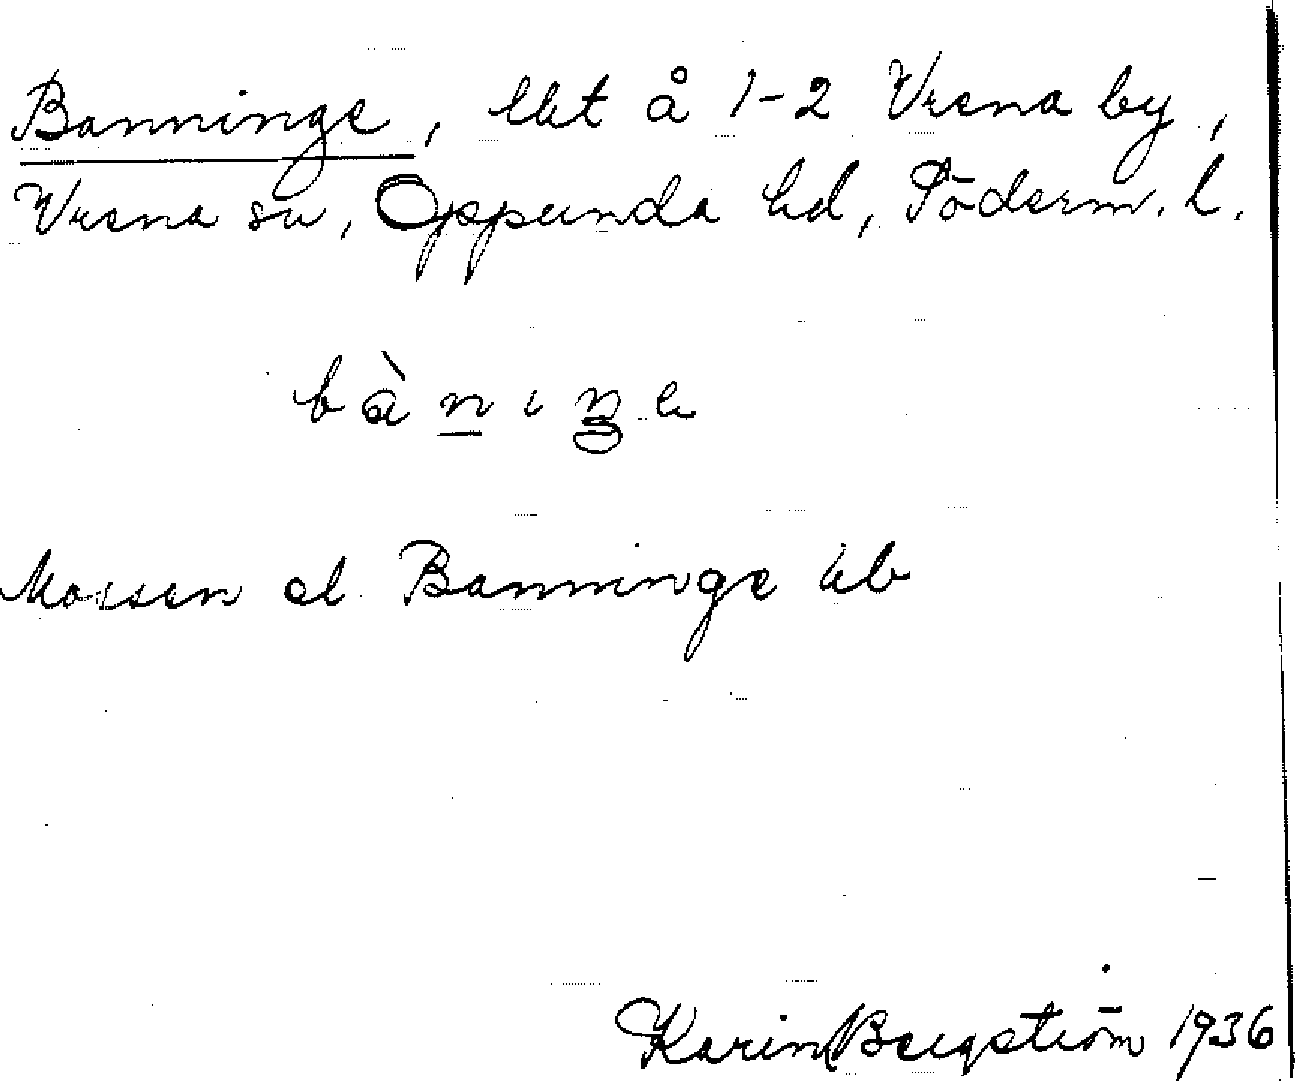 Banninge, lht å 1-2 Vrena by,
Vrena sn, Oppunda hd, Söderm. l.
bànıŋe
Mossen el. Banninge
Karin Bergström 1936